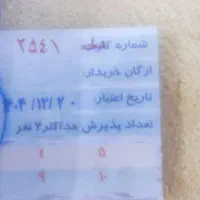 شماره کارت: ۲۵۴۱
ارگان خریدار:
تاریخ اعتبار: ۴۰۴/۱۲/۲۰
تعداد پذیرش حداکثر ۲ نفر
۵ ۴
۱۰ ۹